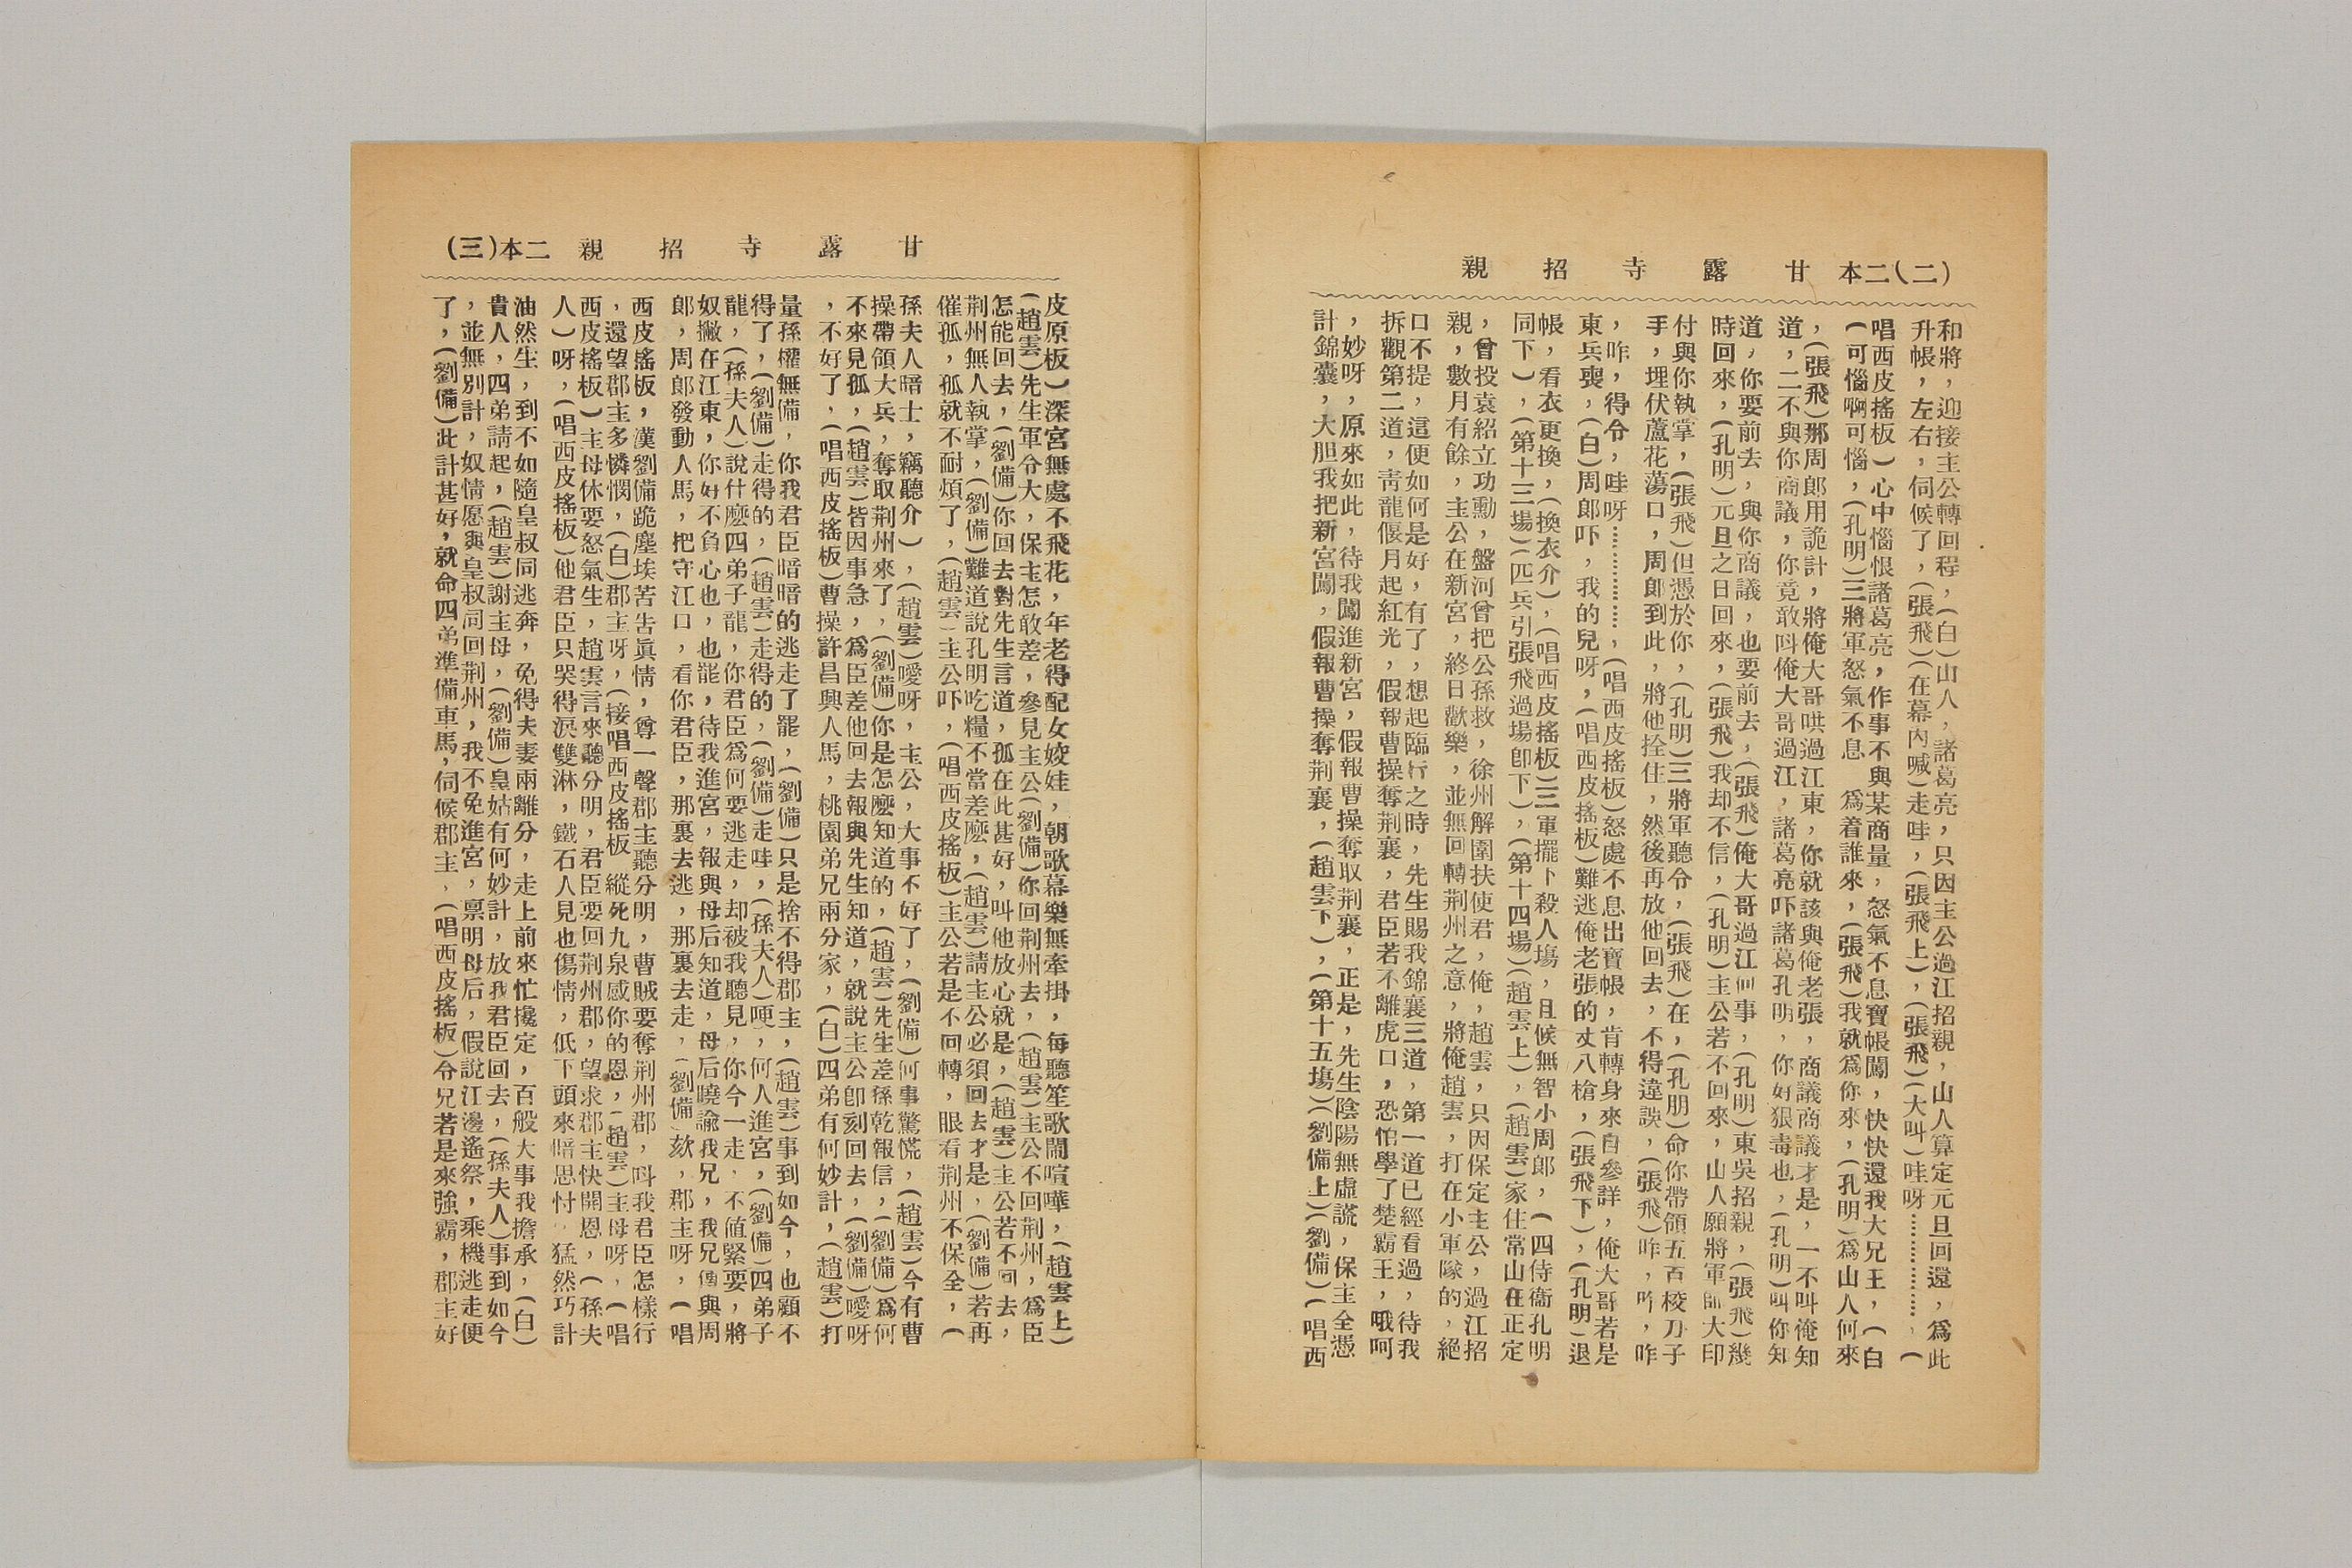 (二)二本 甘露寺招親
和將，迎接主公轉回程，(白)山人，諸葛亮，只因主公過江招親，山人算定元旦回還，爲此
升帳，左右，伺候了，(張飛)(在幕內喊)走哇，(張飛上)，(張飛)(大叫)哇呀……………，(
唱西皮搖板)心中惱恨諸葛亮，作事不與某商量，怒氣不息寶帳闖，快快還我大兄王，(白
(可惱啊可惱，(孔明)三將軍怒氣不息　爲着誰來，(張飛)我就爲你來，(孔明)爲山人何來
，(張飛)那周郎用詭計，將俺大哥哄過江東，你就該與俺老張，商議商議才是，一不叫俺知
道，二不與你商議，你竟敢呌俺大哥過江，諸葛亮吓諸葛孔明，你好狠毒也，(孔明)叫你知
道，你要前去，與你商議，也要前去，(張飛)俺大哥過江何事，(孔明)東吳招親，(張飛)幾
時回來，(孔明)元旦之日回來，(張飛)我却不信，(孔明)主公若不回來，山人願將軍師大印
付與你執掌，(張飛)但憑於你，(孔明)三將軍聽令，(張飛)在，(孔朋)命你帶領五百校刀子
手，埋伏蘆花蕩口，周郎到此，將他拴住，然後再放他回去，不得違誤，(張飛)咋，咋，咋
，咋，得令，哇呀……………，(唱西皮搖板)怒處不息出寶帳，肯轉身來自參詳，俺大哥若是
東兵喪，(白)周郎吓，我的兒呀，(唱西皮搖板)難逃俺老張的丈八槍，(張飛下)，(孔明)退
帳，看衣更換，(換衣介)，(唱西皮搖板)三軍擺下殺人塲，且候無智小周郎，(四侍衞孔明
同下)，(第十三塲)(四兵引張飛過塲卽下)，(第十四塲)(趙雲上)，(趙雲)家住常山在正定
，曾投袁紹立功勳，盤河曾把公孫救，徐州解圍扶使君，俺，趙雲，只因保定主公，過江招
親，數月有餘，主公在新宮，終日歡樂，並無回轉荆州之意，將俺趙雲，打在小軍隊的，絕
口不提，這便如何是好，有了，想起臨行之時，先生賜我錦襄三道，第一道已經看過，待我
拆觀第二道，靑龍偃月起紅光，假報曹操奪荆襄，君臣若不離虎口，恐怕學了楚霸王，哦呵
，妙呀，原來如此，待我闖進新宮，假報曹操奪取荆襄，正是，先生陰陽無虛謊，保主全憑
計錦囊，大胆我把新宮闖，假報曹操奪荆襄，(趙雲下)，(第十五塲)(劉備上)(劉備)(唱西
甘露寺招親 二本(三)
皮原板)深宮無處不飛花，年老得配女姣娃，朝歌幕樂無牽掛，每聽笙歌鬧喧嘩，(趙雲上)
(趙雲)先生軍令大，保主怎敢差，參見主公(劉備)你回荆州去，(趙雲)主公不回荆州，爲臣
怎能回去，(劉備)你回去對先生言道，孤在此甚好，叫他放心就是，(趙雲)主公若不回去，
荆州無人執掌，(劉備)難道說孔明吃糧不當差麽，(趙雲)請主公必須回去才是，(劉備)若再
催孤，孤就不耐煩了，(趙雲)主公吓，(唱西皮搖板)主公若是不回轉，眼看荆州不保全，(
孫夫人暗士，竊聽介)，(趙雲)噯呀，主公，大事不好了，(劉備)何事驚慌，(趙雲)今有曹
操帶領大兵，奪取荆州來了，(劉備)你是怎麽知道的，(趙雲)先生差孫乾報信，(劉備)爲何
不來見孤，(趙雲)皆因事急，爲臣差他回去報與先生知道，就說主公卽刻回去，(劉備)噯呀
，不好了，(唱西皮搖板)曹操許昌興人馬，桃園弟兄兩分家，(白)四弟有何妙計，(趙雲)打
量孫權無備，你我君臣暗暗的逃走了罷，(劉備)只是捨不得郡主，(趙雲)事到如今，也顧不
得了，(劉備)走得的，(趙雲)走得的，(劉備)走哇，(孫夫人)哽，何人進宮，(劉備)四弟子
龍，(孫夫人)說什麽四弟子龍，你君臣爲何要逃走，却被我聽見，你今一走，不値緊要，將
奴撇在江東，你好不負心也，也罷，待我進宮，報與母后知道，母后曉諭我兄，我兄傳與周
郎，周郎發動人馬，把守江口，看你君臣，那裏去逃，那裏去走，(劉備)欸，郡主呀，(唱
西皮搖板，漢劉備跪塵埃苦吿眞情，尊一聲郡主聽分明，曹賊要奪荆州郡，呌我君臣怎樣行
，還望郡主多憐憫，(白)郡主呀，(接唱西皮搖板　縱死九泉感你的恩，(趙雲)主母呀，(唱
西皮搖板)主母休要怒氣生，趙雲言來聽分明，君臣要回荆州郡，望求郡主快開恩，(孫夫
人)呀，(唱西皮搖板)他君臣只哭得淚雙淋，鐵石人見也傷情，低下頭來暗思忖，猛然巧計
油然生，到不如隨皇叔同逃奔，免得夫妻兩離分，走上前來忙攙定，百般大事我擔承，(白)
貴人，四弟請起，(趙雲)謝主母，(劉備)皇姑有何妙計，放我君臣回去，(孫夫人)事到如今
，並無別計，奴情愿與皇叔同回荆州，我不免進宮，禀明母后，假說江邊遙祭，乘機逃走便
了，(劉備)此計甚好，就命四弟準備車馬，伺候郡主，(唱西皮搖板)令兄若是來強霸，郡主好